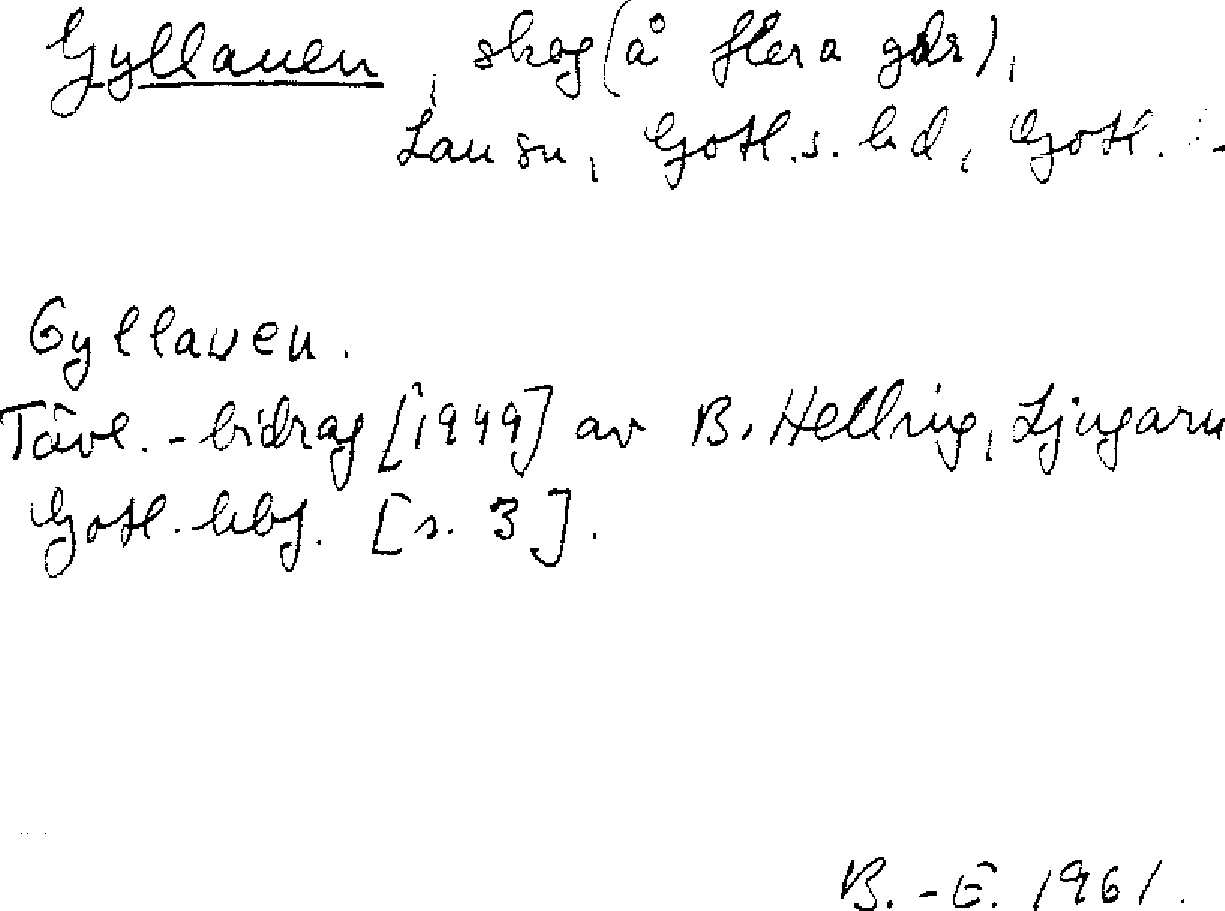 Gyllauen, skog (å flera gdr),
Lau sn, Gotl.s. hd, Gotl. :-
Gyllauen.
Tävl. -bidrag [1949] av B. Hellring, Ljugarn
Gotl. hbf. [s. 3].
B. -E. 1961.